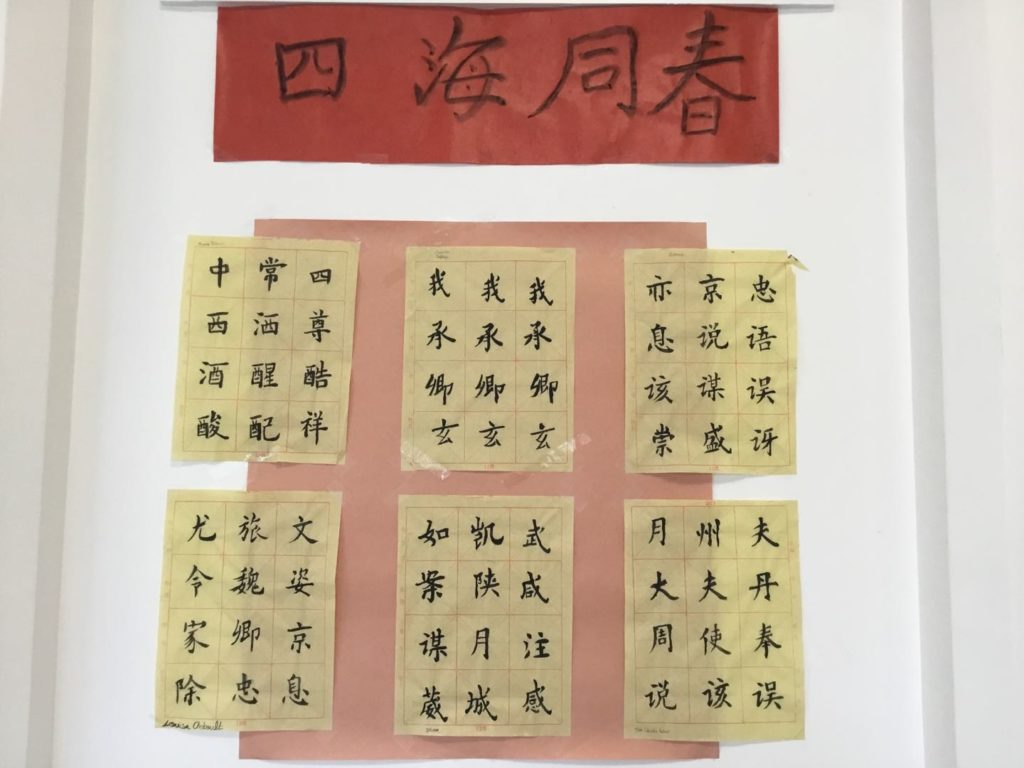 四海同春
中常四
西洒尊
酒醒酷
酸配祥
我我我
承承承
卿卿卿
玄玄玄
亦京忠
息说语
该谋误
崇盛讶
尤旅文
令魏姿
家卿京
除忠息
如凯武
案陕咸
谋月注
葳城感
月州夫
大夫丹
周使奉
说该误